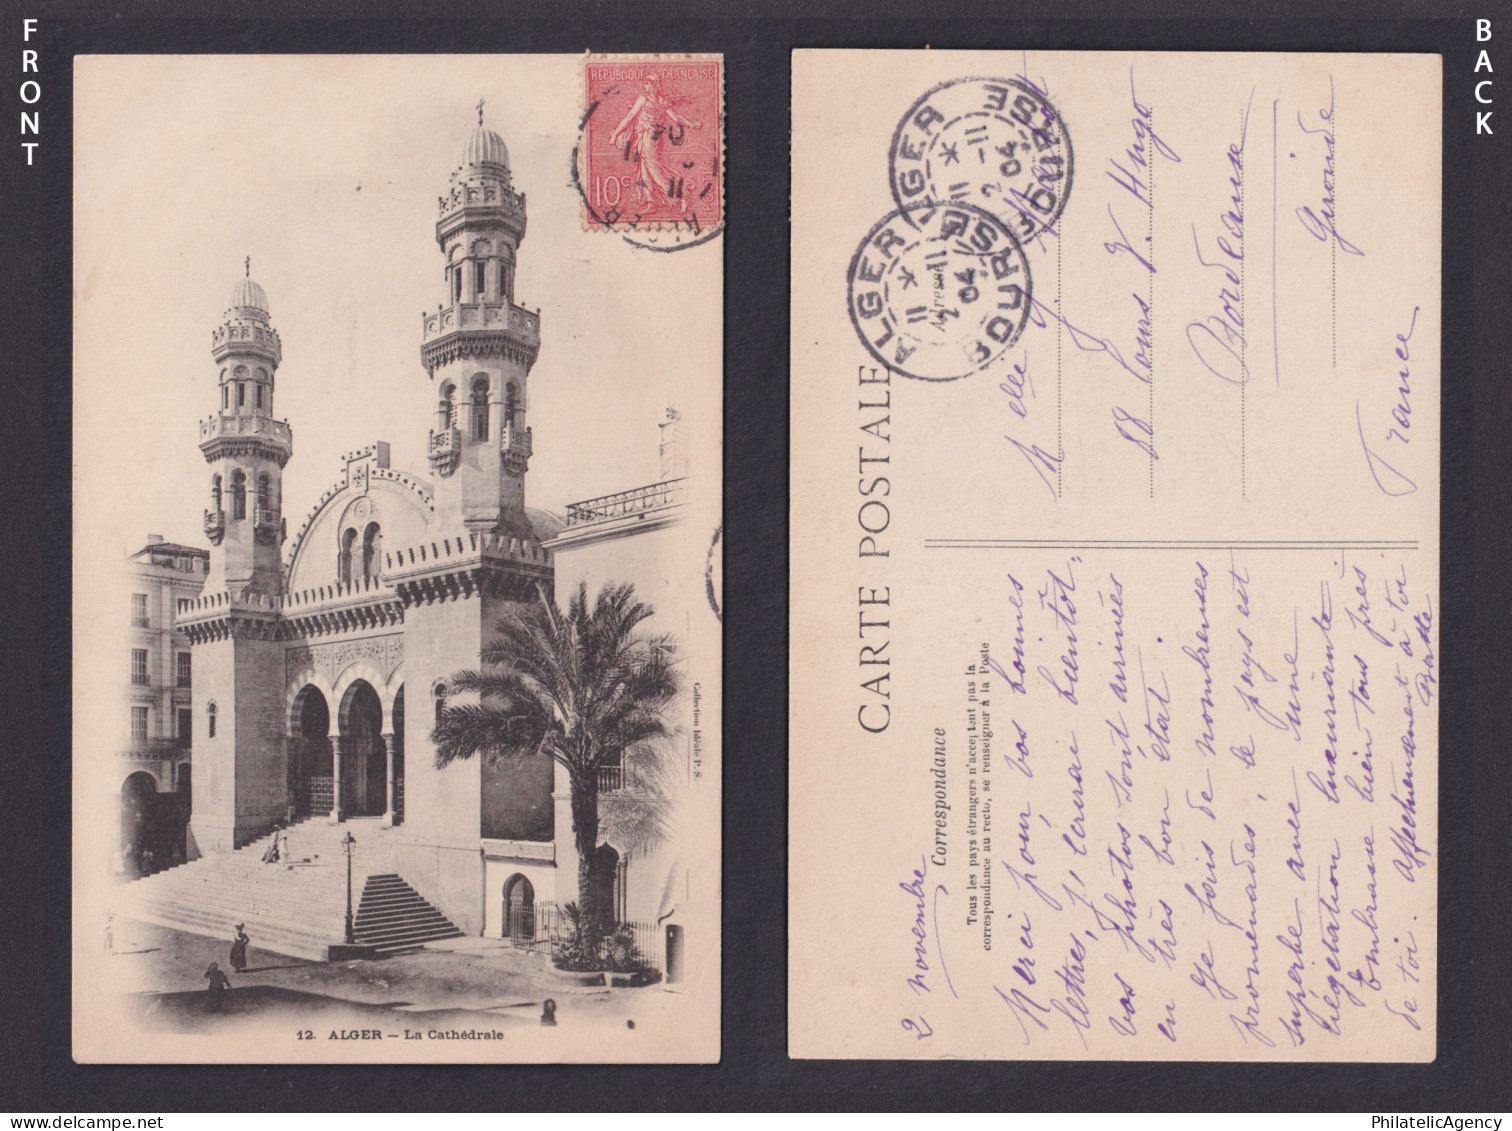 FRONT
BACK
RÉPUBLIQUE FRANÇAISE
10c
04
11
ALGER
Collection Idéale P. S.
12. ALGER — La Cathédrale
CARTE POSTALE
ALGER BOURSE
11 * 2 -11 04
ALGER BOURSE
11 * 2 -11 04
Adresse
Melle
88 Cours V. Hugo
Bordeaux
Gironde
France
Correspondance
Tous les pays étrangers n'acceptent pas la
correspondance au recto, se renseigner à la Poste
2 novembre
Merci pour vos bonnes
lettres, j'écrirai bientôt.
Vos photos sont arrivées
en très bon état.
Je fais de nombreuses
promenades, le pays est
superbe avec une
végétation luxuriante
Embrasse bien tous près
de toi. affectueusement à toi
PhilatelicAgency